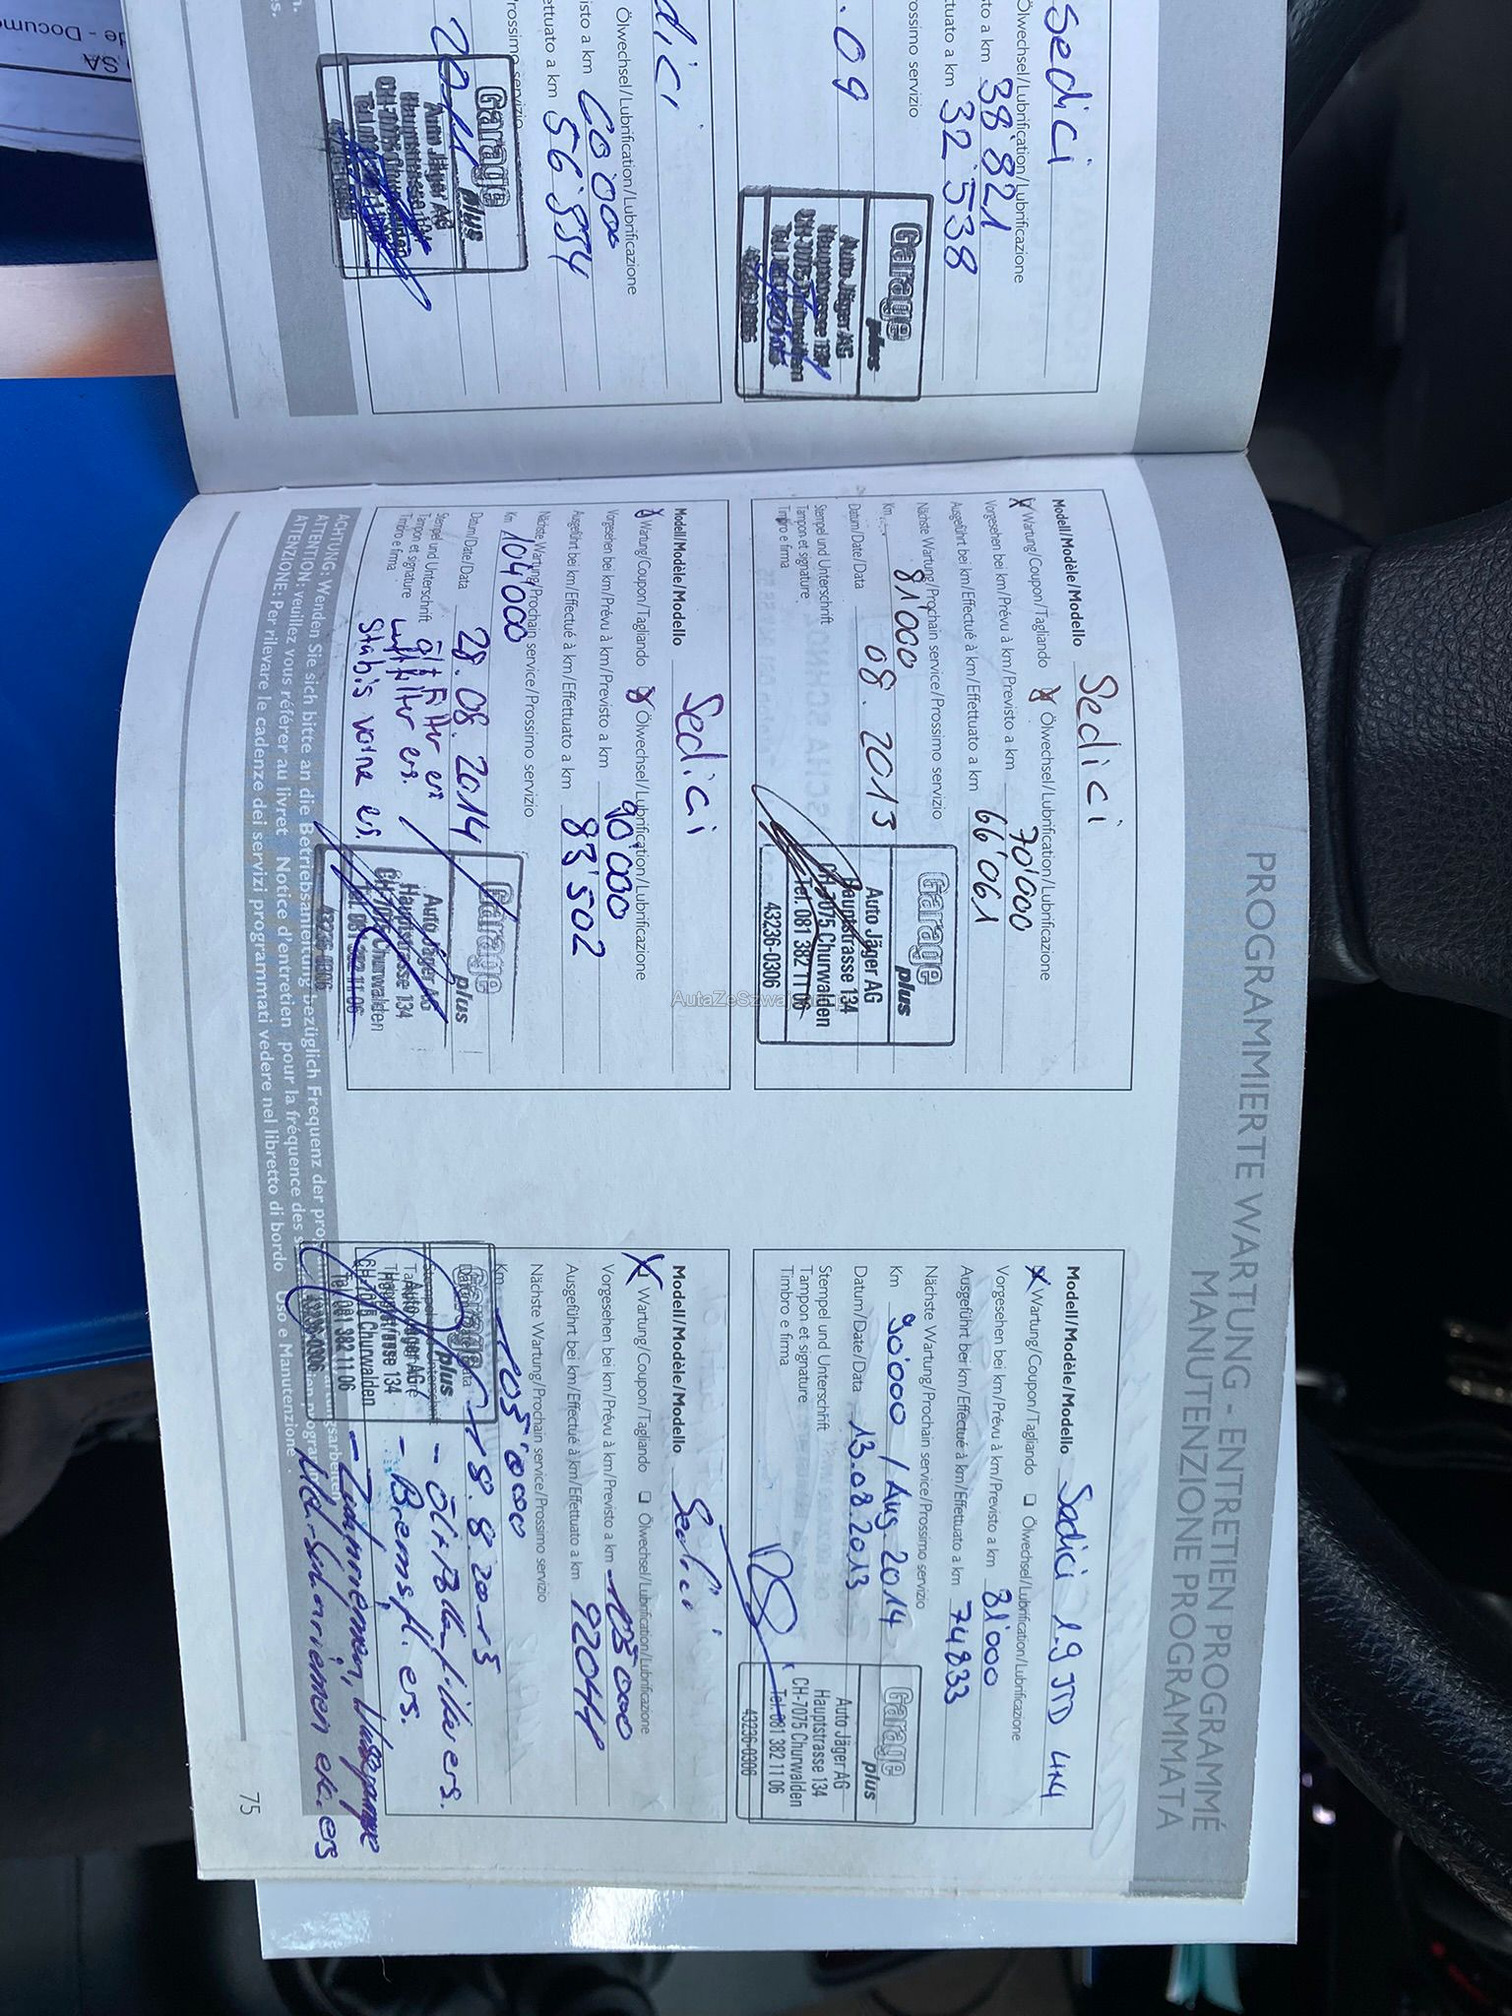 Sedici
Ölwechsel/Lubrification/Lubrificazione
sto a km 38'821
tuato a km 32'538
rossimo servizio
.09
Garage
plus
Auto Jäger AG
Hauptstrasse 134
dici
Ölwechsel/Lubrification/Lubrificazione
isto a km 60'000
ettuato a km 56'554
rossimo servizio
2011
Garage
plus
Auto Jäger AG
PROGRAMMIERTE WARTUNG - ENTRETIEN PROGRAMMÉ
MANUTENZIONE PROGRAMMATA
Modell/Modèle/Modello Sedici
Wartung/Coupon/Tagliando Ölwechsel/Lubrification/Lubrificazione
Vorgesehen bei km/Prévu à km/Previsto a km 70'000
Ausgeführt bei km/Effectué à km/Effettuato a km 66'061
Nächste Wartung/Prochain service/Prossimo servizio
Km 81'000
Datum/Date/Data 08.2013
Stempel und Unterschrift
Tampon et signature
Timbro e firma
Garage
plus
Auto Jäger AG
Hauptstrasse 134
CH-7075 Churwalden
Tel. 081 382 11 06
43236-0306
Modell/Modèle/Modello Sedici
Wartung/Coupon/Tagliando Ölwechsel/Lubrification/Lubrificazione
Vorgesehen bei km/Prévu à km/Previsto a km 90'000
Ausgeführt bei km/Effectué à km/Effettuato a km 83'502
Nächste Wartung/Prochain service/Prossimo servizio
Km 104'000
Datum/Date/Data 28.08.2014
Stempel und Unterschrift
Tampon et signature
Timbro e firma
Öl+Filter ers
Luftfilter ers.
Stabis vorne ers.
Garage
plus
Auto Jäger AG
Hauptstrasse 134
CH-7075 Churwalden
Tel. 081 382 11 06
43236-0306
Modell/Modèle/Modello Sedici 1.9 JTD 4x4
Wartung/Coupon/Tagliando Ölwechsel/Lubrification/Lubrificazione
Vorgesehen bei km/Prévu à km/Previsto a km 81'000
Ausgeführt bei km/Effectué à km/Effettuato a km 74'833
Nächste Wartung/Prochain service/Prossimo servizio
Km 90'000 / Aug 2014
Datum/Date/Data 13.08.2013
Stempel und Unterschrift
Tampon et signature
Timbro e firma
Garage
plus
Auto Jäger AG
Hauptstrasse 134
CH-7075 Churwalden
Tel. 081 382 11 06
43236-0306
Modell/Modèle/Modello Sedici
Wartung/Coupon/Tagliando Ölwechsel/Lubrification/Lubrificazione
Vorgesehen bei km/Prévu à km/Previsto a km
Ausgeführt bei km/Effectué à km/Effettuato a km 92044
Nächste Wartung/Prochain service/Prossimo servizio
Km 105'000
18.8.2015
- Öl+Blaufilter ers.
- Bremsfl. ers.
- Zahnriemen,
Garage
plus
Auto Jäger AG
Hauptstrasse 134
CH-7075 Churwalden
Tel. 081 382 11 06
43236-0306
ACHTUNG: Wenden Sie sich bitte an die Betriebsanleitung bezüglich Frequenz der
ATTENTION: veuillez vous référer au livret Notice d'entretien pour la fréquence des
ATTENZIONE: Per rilevare le cadenze dei servizi programmati vedere nel libretto di bordo Uso e Manutenzione.
75